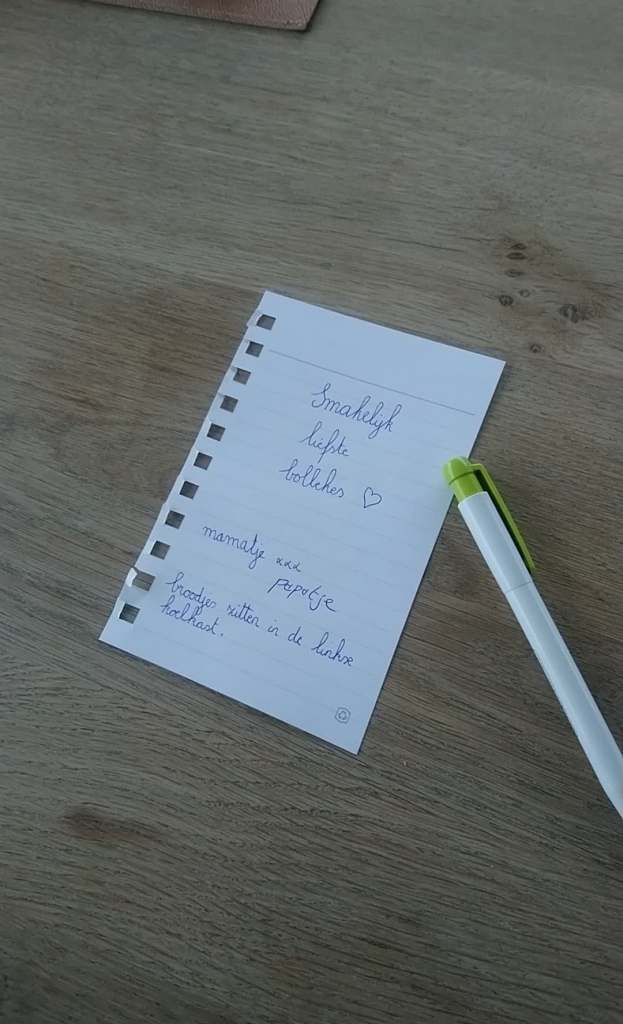 Smakelijk
liefste
bollekes ♡
mamatje xxx
papatje
broodjes zitten in de linkse
koelkast.